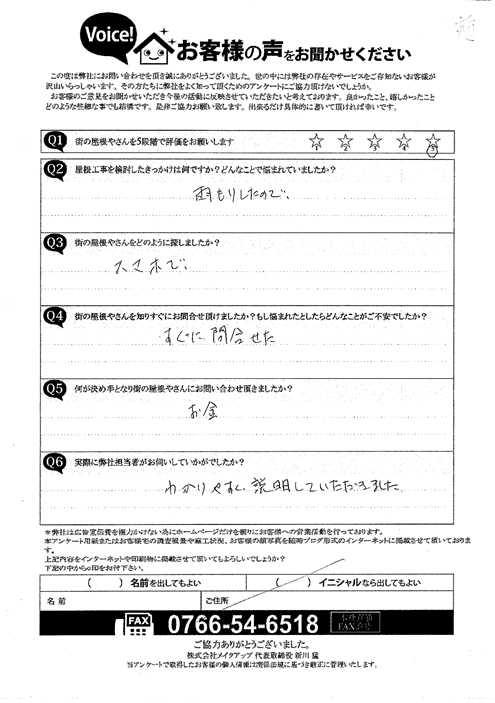 Voice!
お客様の声をお聞かせください
この度は弊社にお問い合わせを頂き誠にありがとうございました。世の中には弊社の存在やサービスをご存知ないお客様が
沢山いらっしゃいます。その方たちに弊社をよく知って頂くためのアンケートにご協力頂けないでしょうか。
お客様のご意見をお聞かせいただき今後の活動に反映させていただきたいと考えております。良かったこと、嬉しかったこと
どのような些細な事でも結構です。是非ご協力お願い致します。出来るだけ具体的に書いて頂ければ幸いです。
Q1 街の屋根やさんを5段階で評価をお願いします
1 2 3 4 5
Q2 屋根工事を検討したきっかけは何ですか?どんなことで悩まれていましたか?
雨もりしたので、
Q3 街の屋根やさんをどのように探しましたか?
スマホで、
Q4 街の屋根やさんを知りすぐにお問合せ頂けましたか?もし悩まれたとしたらどんなことがご不安でしたか?
すぐに問合せた
Q5 何が決め手となり街の屋根やさんにお問い合わせ頂きましたか?
お金
Q6 実際に弊社担当者がお伺いしていかがでしたか?
わかりやすく説明していただきました
*弊社は広告宣伝費を極力かけない為にホームページだけを頼りにお客様への営業活動を行っております。
本アンケート用紙またはお客様宅の調査風景や施工状況、お客様の顔写真を随時ブログ形式のインターネットに掲載させて頂いております。
上記内容をインターネットや印刷物に掲載させて頂いてもよろしいでしょうか?
下記の中から○印をお付下さい。
( ) 名前を出してもよい ( ) イニシャルなら出してもよい
名前 ご住所
FAX 0766-54-6518
ご協力ありがとうございました。
株式会社メイクアップ 代表取締役 新川 猛
当アンケートで取得したお客様の個人情報は関係法規に基づき厳正に管理いたします。